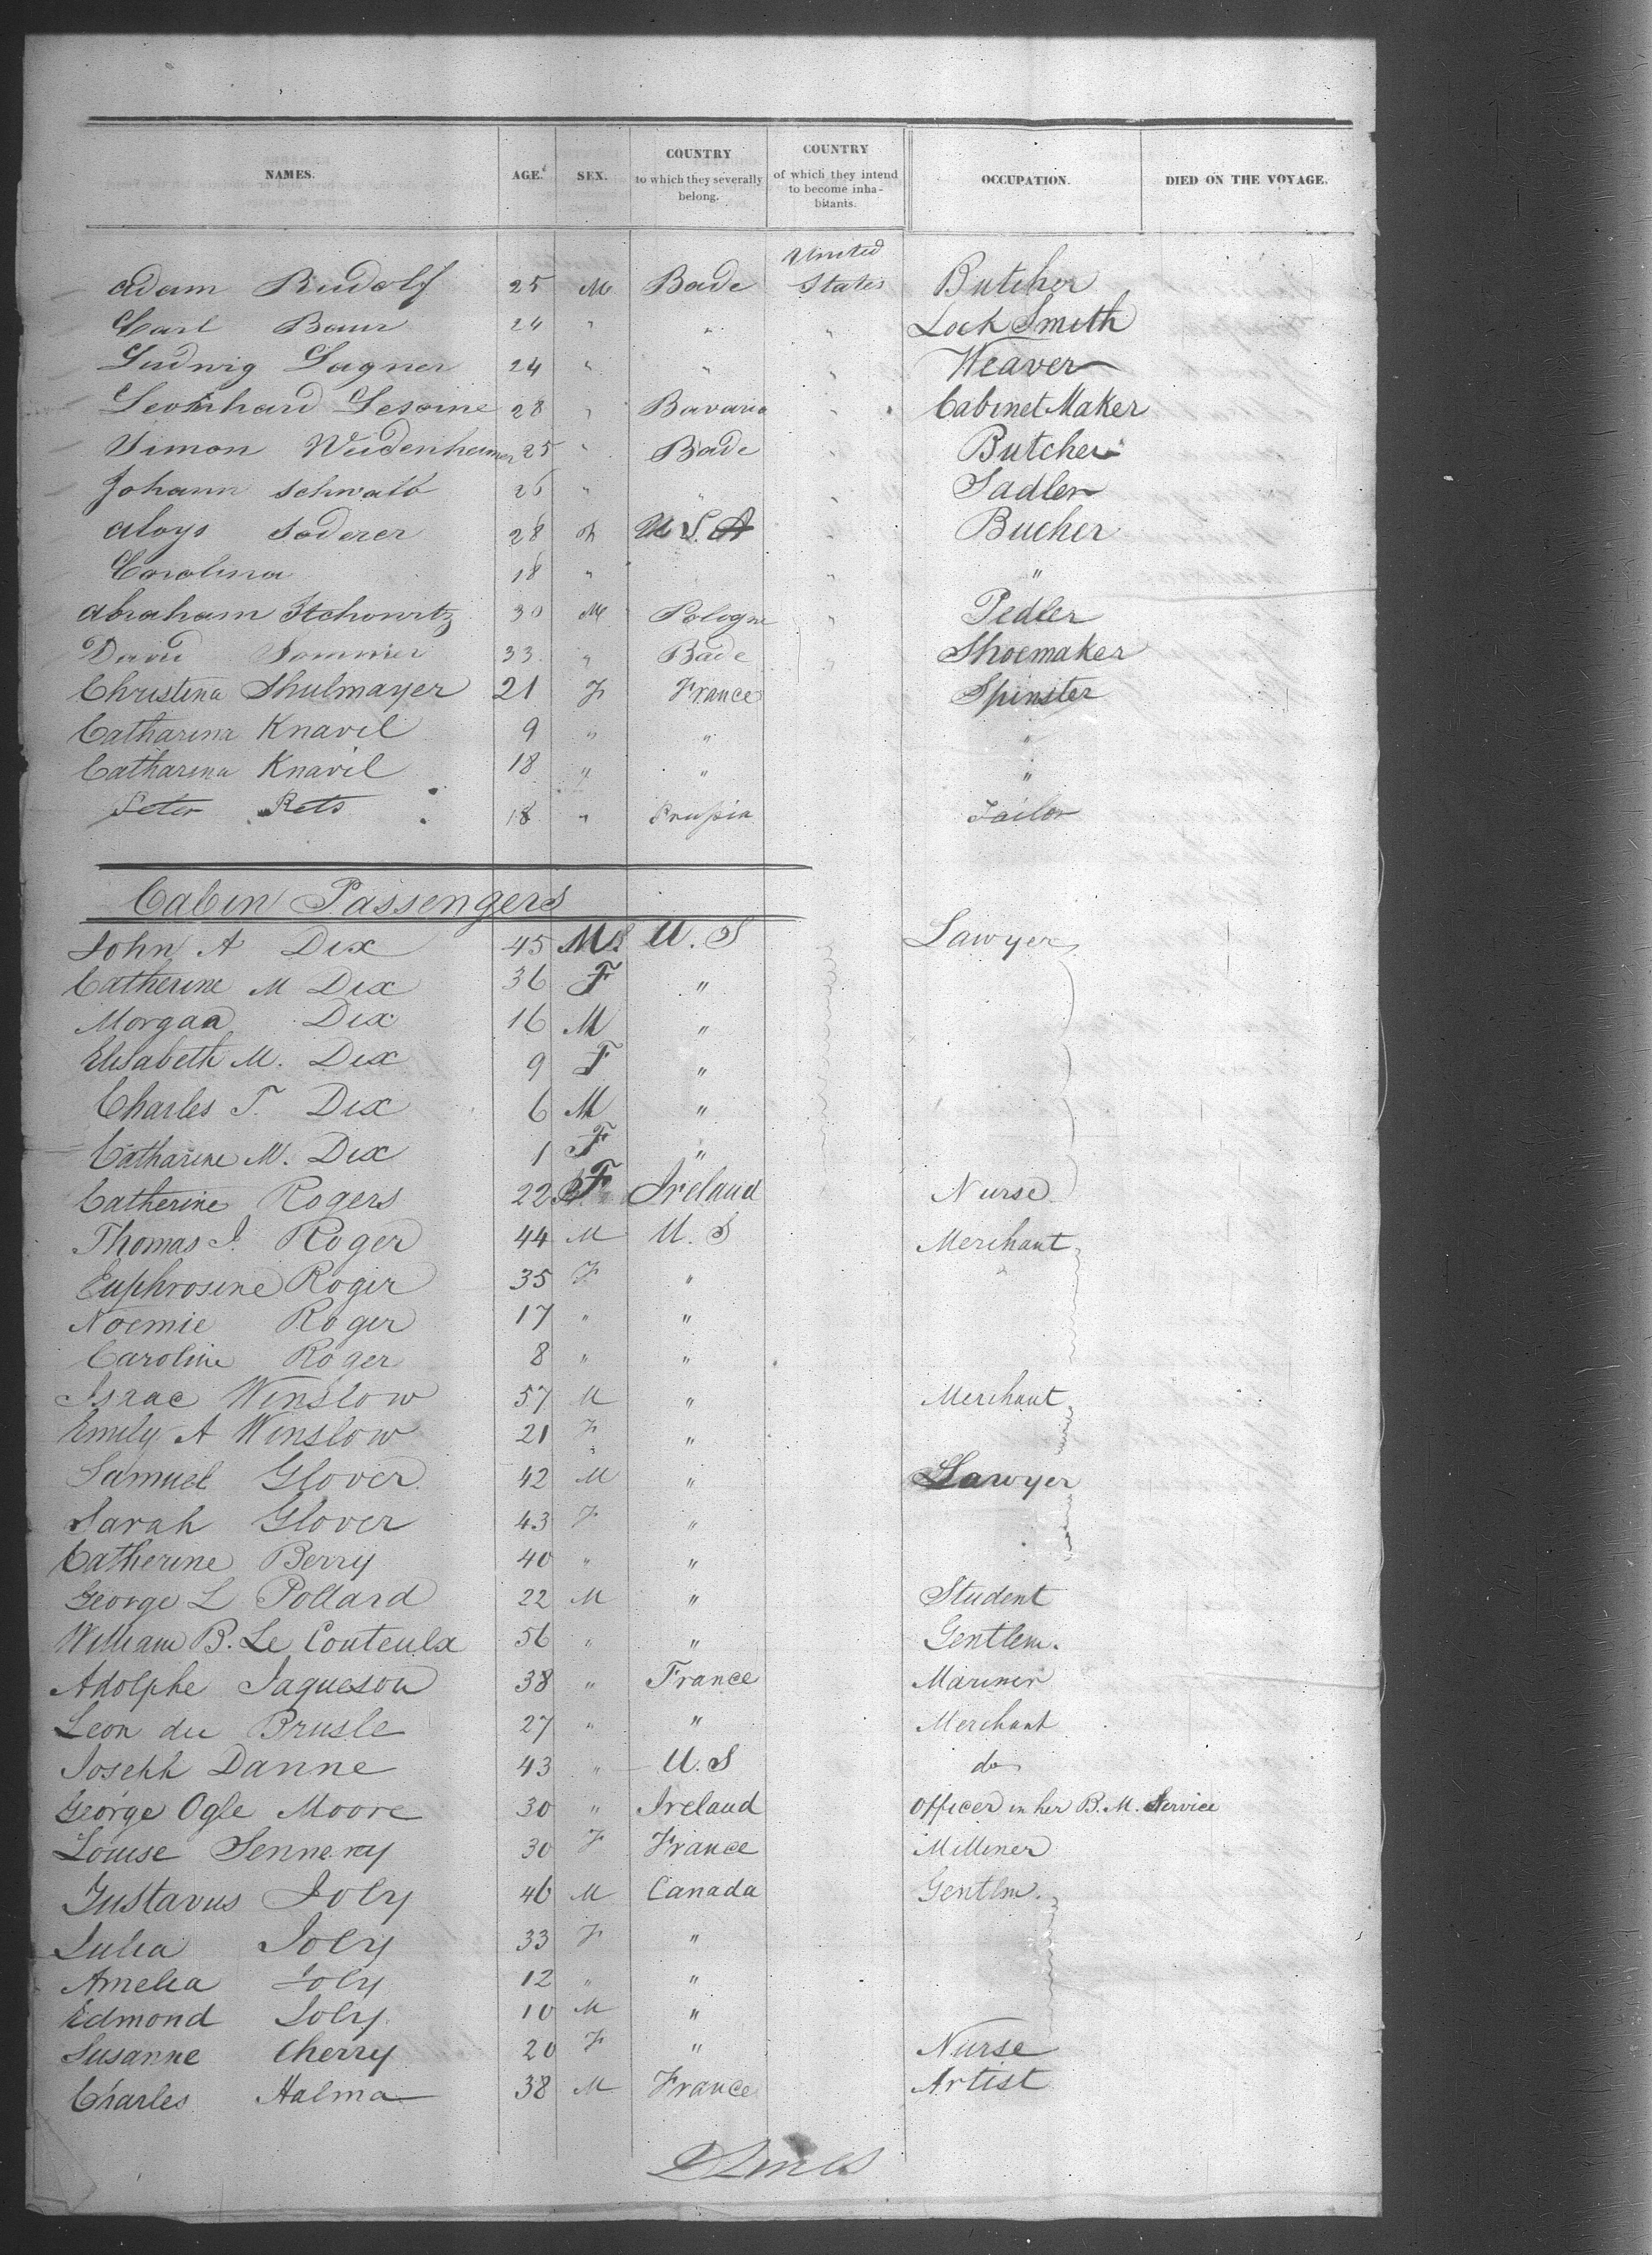 NAMES. AGE. SEX. COUNTRY to which they severally belong. COUNTRY of which they intend to become inhabitants. OCCUPATION. DIED ON THE VOYAGE.
United
Adam Rudolf 25 M Bade States Butcher
Carl Baur 24 " " " Lock Smith
Ludwig Lagner 24 " " " Weaver
Leonhard Lesoine 28 " Bavaria " Cabinet Maker
Simon Weidenheimer 25 " Bade " Butcher
Johann Schwalb 26 " " " Sadler
Aloys Soderer 28 U S A " Bucher
Carolina 18 " " "
Abraham Itchowitz 30 M Pologne " Pedler
David Sommer 33 " Bade " Shoemaker
Christina Shulmayer 21 F France Spinster
Catharina Knavil 9 " " "
Catharina Knavil 18 " " "
Peter Rets 18 " Prussia Tailor
Cabin Passengers
John A Dix 45 M. U. S Lawyer
Catherine M Dix 36 F "
Morgan Dix 16 M "
Elisabeth M. Dix 9 F "
Charles T. Dix 6 M "
Catharine M. Dix 1 F "
Catherine Rogers 22 F Ireland Nurse
Thomas J. Roger 44 M U. S Merchant
Euphrosine Roger 35 F "
Noemie Roger 17 " "
Caroline Roger 8 " "
Isaac Winslow 57 M " Merchant
Emily A Winslow 21 F "
Samuel Glover 42 M " Lawyer
Sarah Glover 43 F "
Catherine Berry 40 " "
George L Pollard 22 M " Student
William B. Le Couteulx 56 " " Gentlem.
Adolphe Jaqueson 38 " France Mariner
Leon du Brusle 27 " " Merchant
Joseph Danne 43 " U. S do
George Ogle Moore 30 " Ireland Officer in her B. M. Service
Louise Sennery 30 F France Milliner
Gustavus Joly 46 M Canada Gentlm.
Julia Joly 33 F "
Amelia Joly 12 " "
Edmond Joly 10 M "
Susanne Cherry 20 F " Nurse
Charles Halma 38 M France Artist